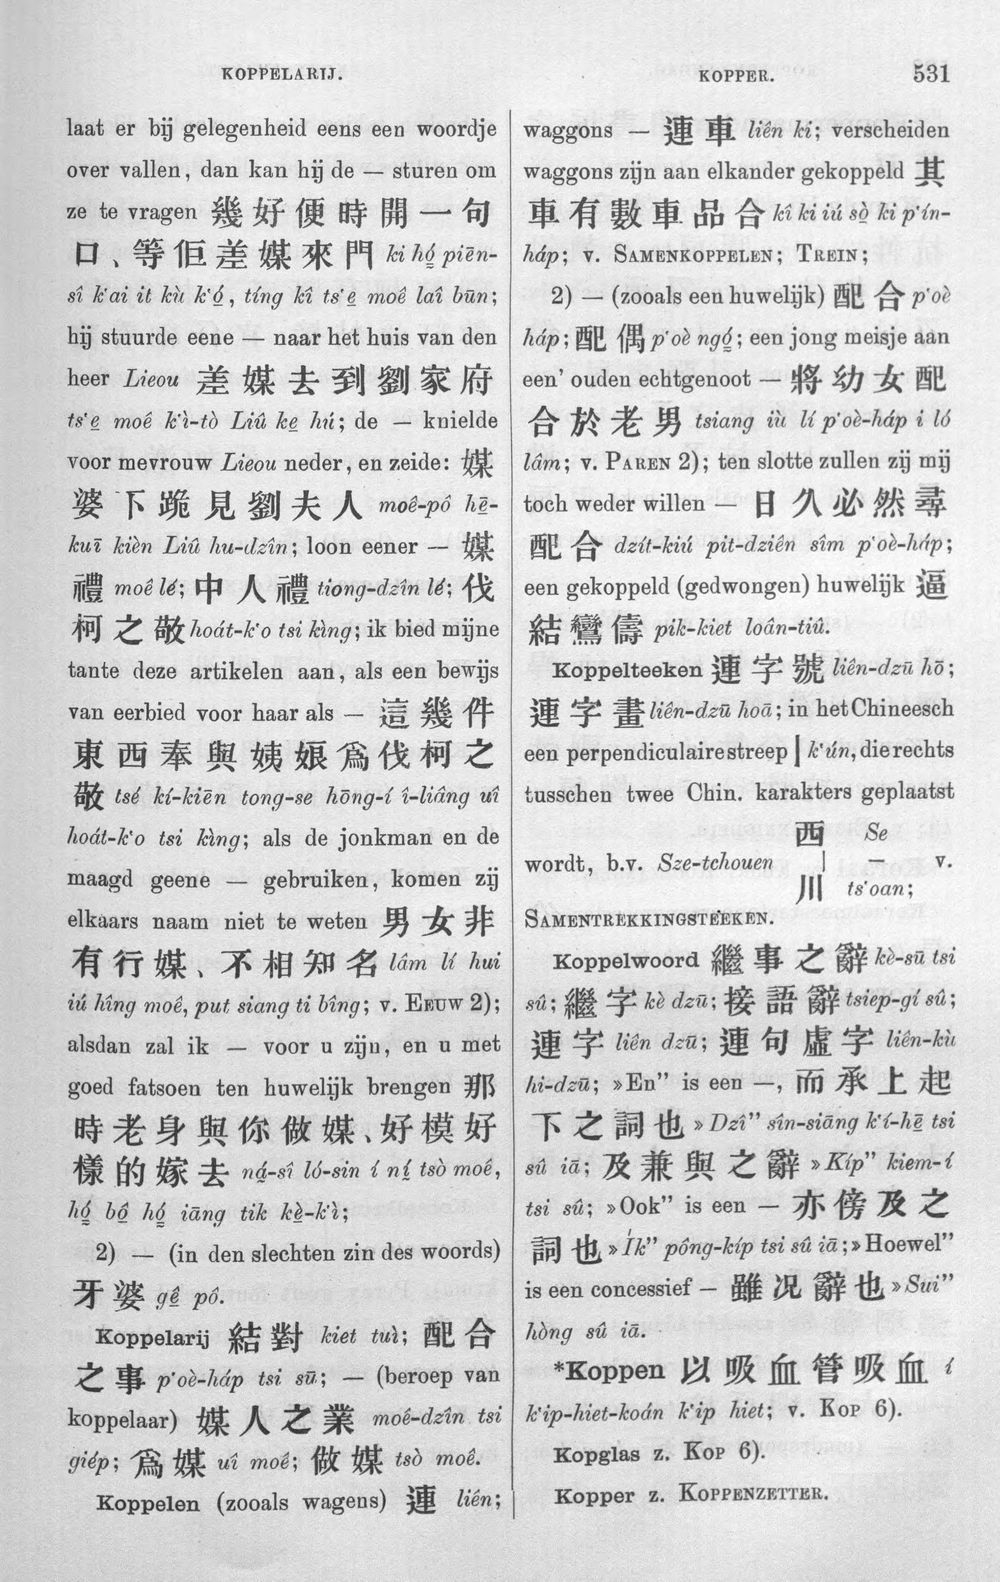 KOPPELARIJ.
KOPPER.
531
laat er bij gelegenheid eens een woordje
over vallen, dan kan hij de — sturen om
ze te vragen 幾好便時開一句
口、等佢差媒來門 ki hó piēn-
sî k‘ai it kù k‘ó, tíng kî ts‘e moê laî būn;
hij stuurde eene — naar het huis van den
heer Lieou 差媒去到劉家府
ts‘e moê k‘ì-tò Liû ke hú; de — knielde
voor mevrouw Lieou neder, en zeide: 媒
婆下跪見劉夫人 moê-pô hē-
kuī kièn Liû hu-dzîn; loon eener — 媒
禮 moê lé; 中人禮 tiong-dzîn lé; 伐
柯之敬 hoát-k‘o tsi kìng; ik bied mijne
tante deze artikelen aan, als een bewijs
van eerbied voor haar als — 這幾件
東西奉與姨娘爲伐柯之
敬 tsé kí-kiēn tong-se hōng-í î-liâng uî
hoát-k‘o tsi kìng; als de jonkman en de
maagd geene — gebruiken, komen zij
elkaars naam niet te weten 男女非
有行媒、不相知名 lâm lí hui
iú hîng moê, put siang ti bîng; v. EEUW 2);
alsdan zal ik — voor u zijn, en u met
goed fatsoen ten huwelijk brengen 那
時老身與你做媒、好模好
樣的嫁去 ná-sî ló-sin í ní tsò moê,
hó bô hó iāng tik kè-k‘ì;
2) — (in den slechten zin des woords)
牙婆 gê pô.
Koppelarij 結對 kiet tuì; 配合
之事 p‘oè-háp tsi sū; — (beroep van
koppelaar) 媒人之業 moê-dzîn tsi
giép; 爲媒 uî moê; 做媒 tsò moê.
Koppelen (zooals wagens) 連 liên;
waggons — 連車 liên ki; verscheiden
waggons zijn aan elkander gekoppeld 其
車有數車品合 kî ki iú sò ki p‘ín-
háp; v. SAMENKOPPELEN; TREIN;
2) — (zooals een huwelijk) 配合 p‘oè
háp; 配偶 p‘oè ngó; een jong meisje aan
een’ ouden echtgenoot — 將幼女配
合於老男 tsiang iù lí p‘oè-háp i ló
lâm; v. PAREN 2); ten slotte zullen zij mij
toch weder willen — 日久必然尋
配合 dzít-kiú pit-dziên sîm p‘oè-háp;
een gekoppeld (gedwongen) huwelijk 逼
結鸞儔 pik-kiet loân-tiû.
Koppelteeken 連字號 liên-dzū hō;
連字畫 liên-dzū hoā; in het Chineesch
een perpendiculaire streep | k‘ún, die rechts
tusschen twee Chin. karakters geplaatst
西 Se
wordt, b.v. Sze-tchouen | – v.
川 ts‘oan;
SAMENTREKKINGSTEEKEN.
Koppelwoord 繼事之辭 kè-sū tsi
sû; 繼字 kè dzū; 接語辭 tsiep-gí sû;
連字 liên dzū; 連句虛字 liên-kù
hi-dzū; »En” is een —, 而承上起
下之詞也 »Dzî” sîn-siāng k‘í-hē tsi
sû iā; 及兼與之辭 »Kíp” kiem-í
tsi sû; »Ook” is een — 亦傍及之
詞也 »Ík” pông-kíp tsi sû iā; »Hoewel”
is een concessief — 雖况辭也 »Sui”
hòng sû iā.
*Koppen 以吸血管吸血 í
k‘ip-hiet-koán k‘ip hiet; v. KOP 6).
Kopglas z. KOP 6).
Kopper z. KOPPENZETTER.